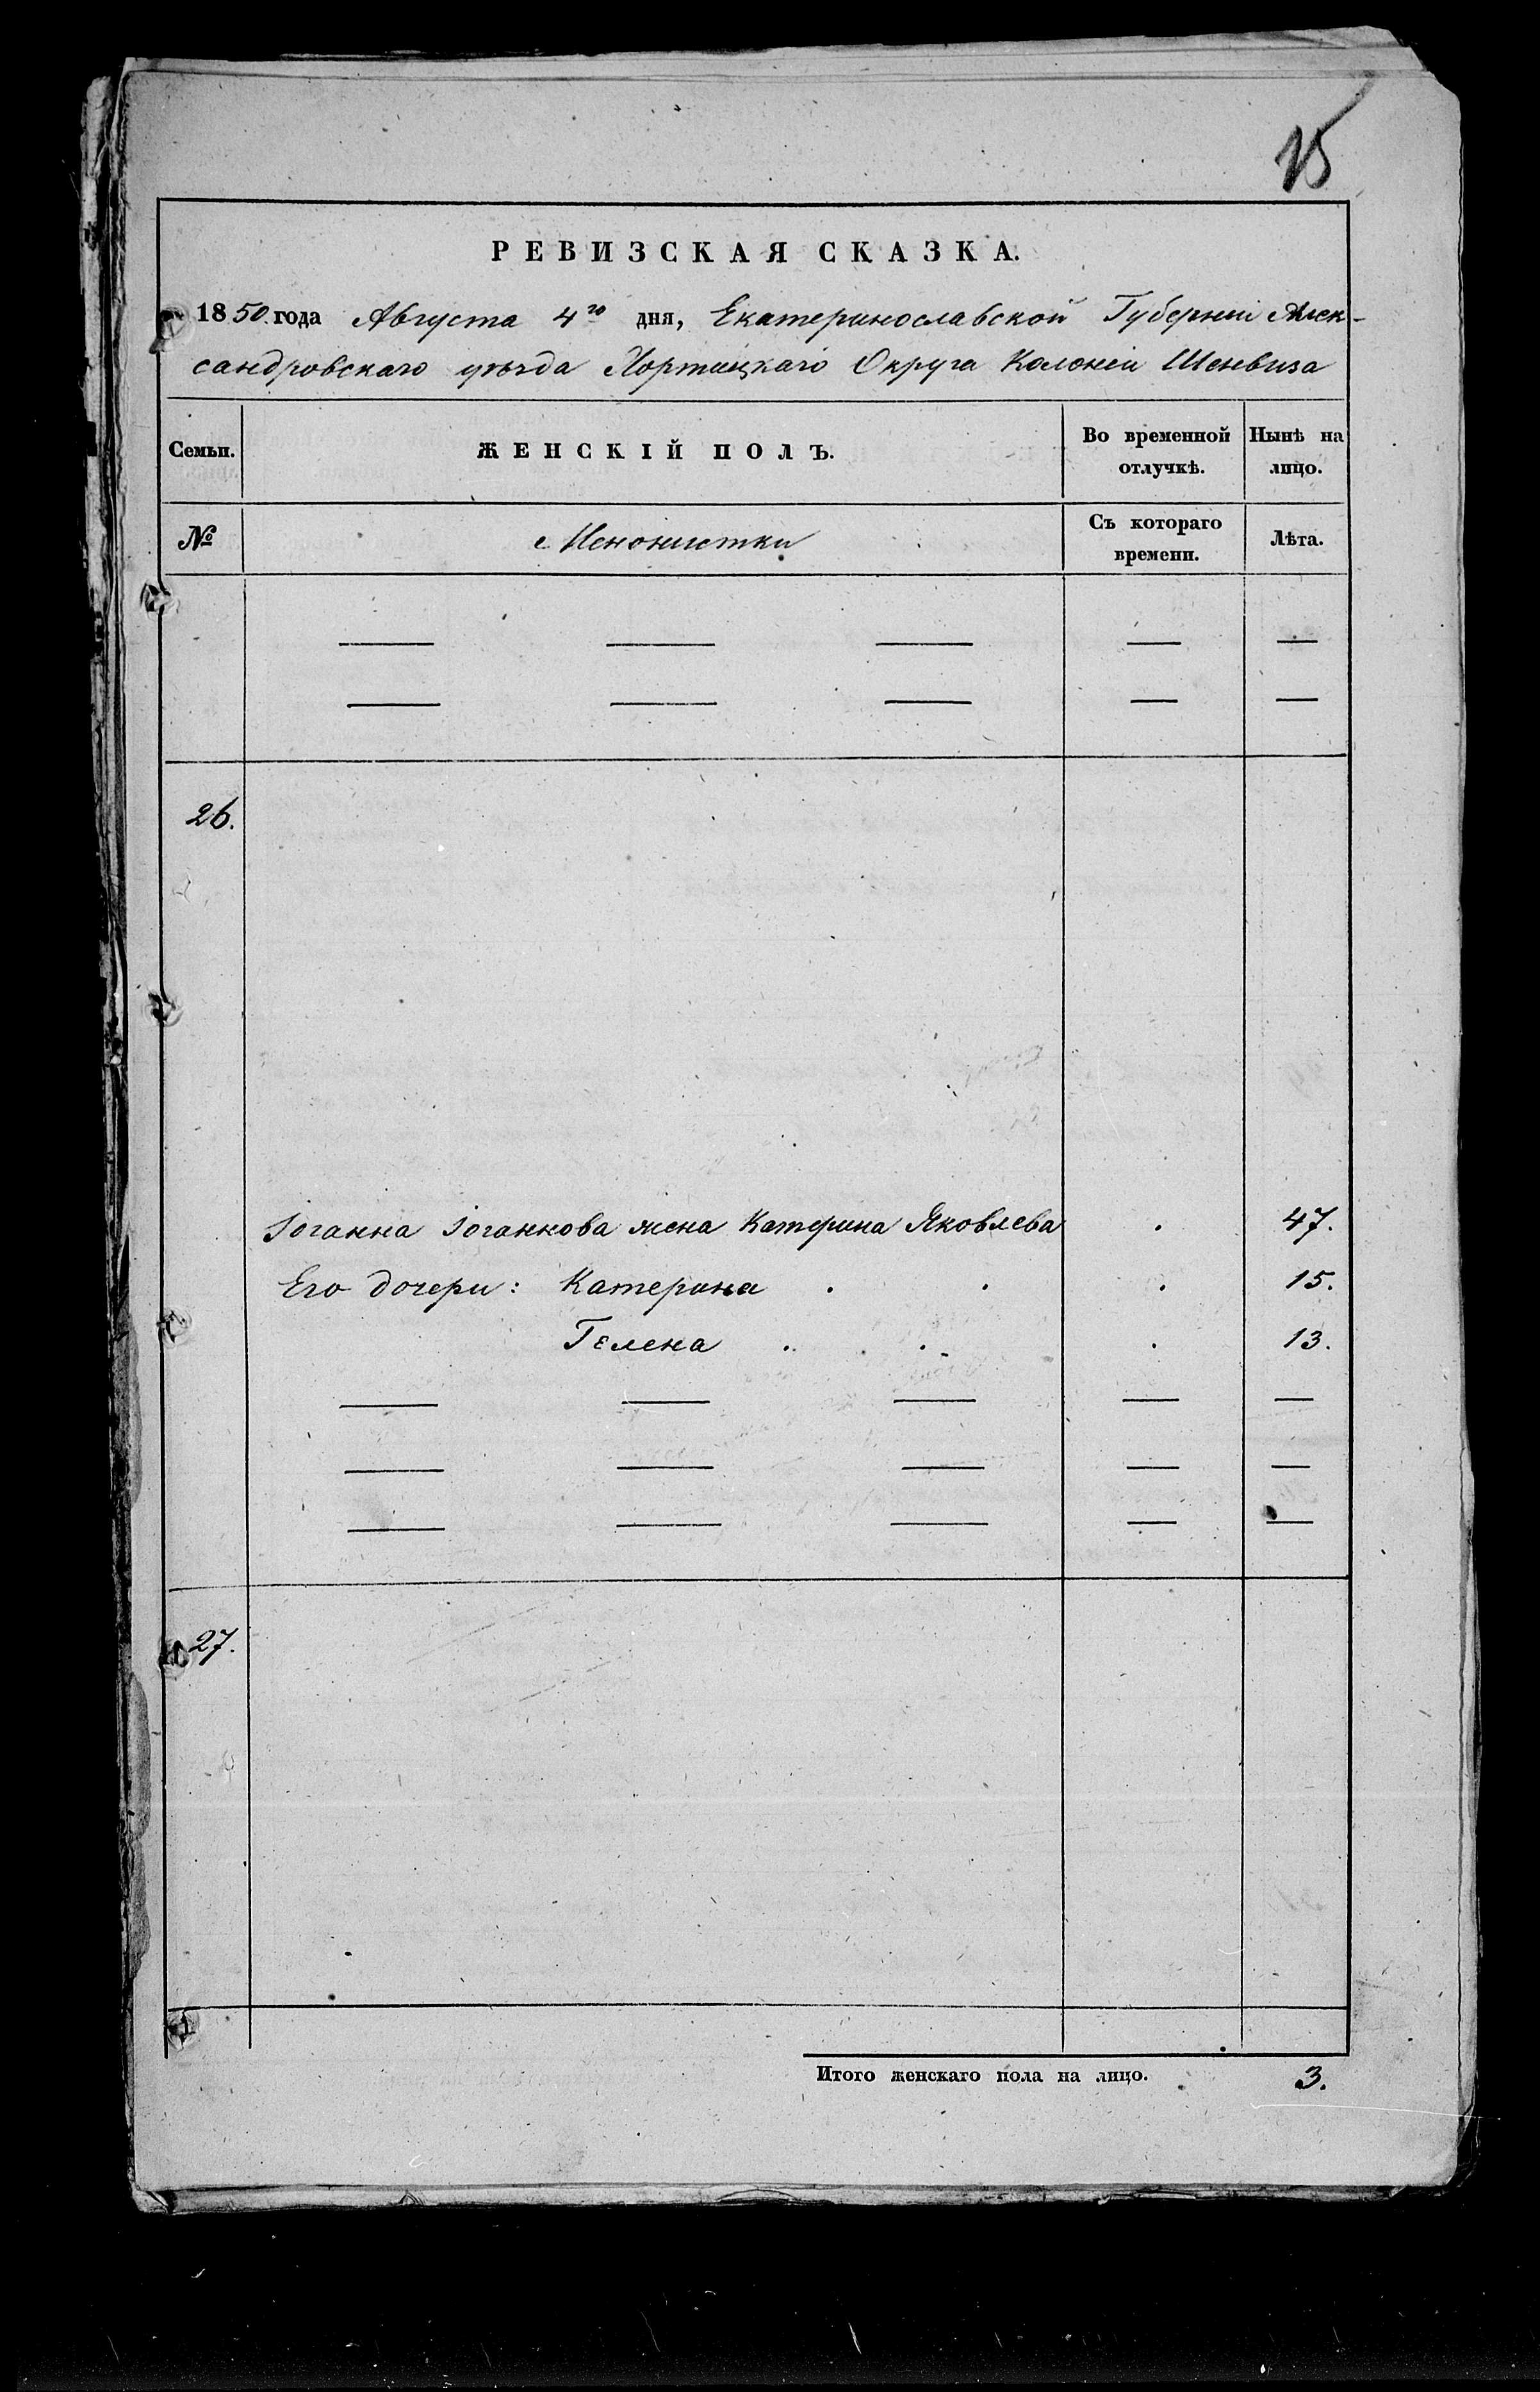 15
РЕВИЗСКАЯ СКАЗКА.
1850 года Августа 4го дня, Екатеринославской Губерніи Алек-
сандровскаго уѣзда Хортицкаго Округа Колоніи Шенвиза
Семьи.
ЖЕНСКІЙ ПОЛЪ.
Во временной отлучкѣ.
Нынѣ на лицо.
№
Менонистки
Съ котораго времени.
Лѣта.
26.
Іоганна Іоганнова жена Катерина Яковлева . 47.
Его дочери: Катерина . . . 15.
Гелена . . . 13.
27.
Итого женскаго пола на лицо. 3.